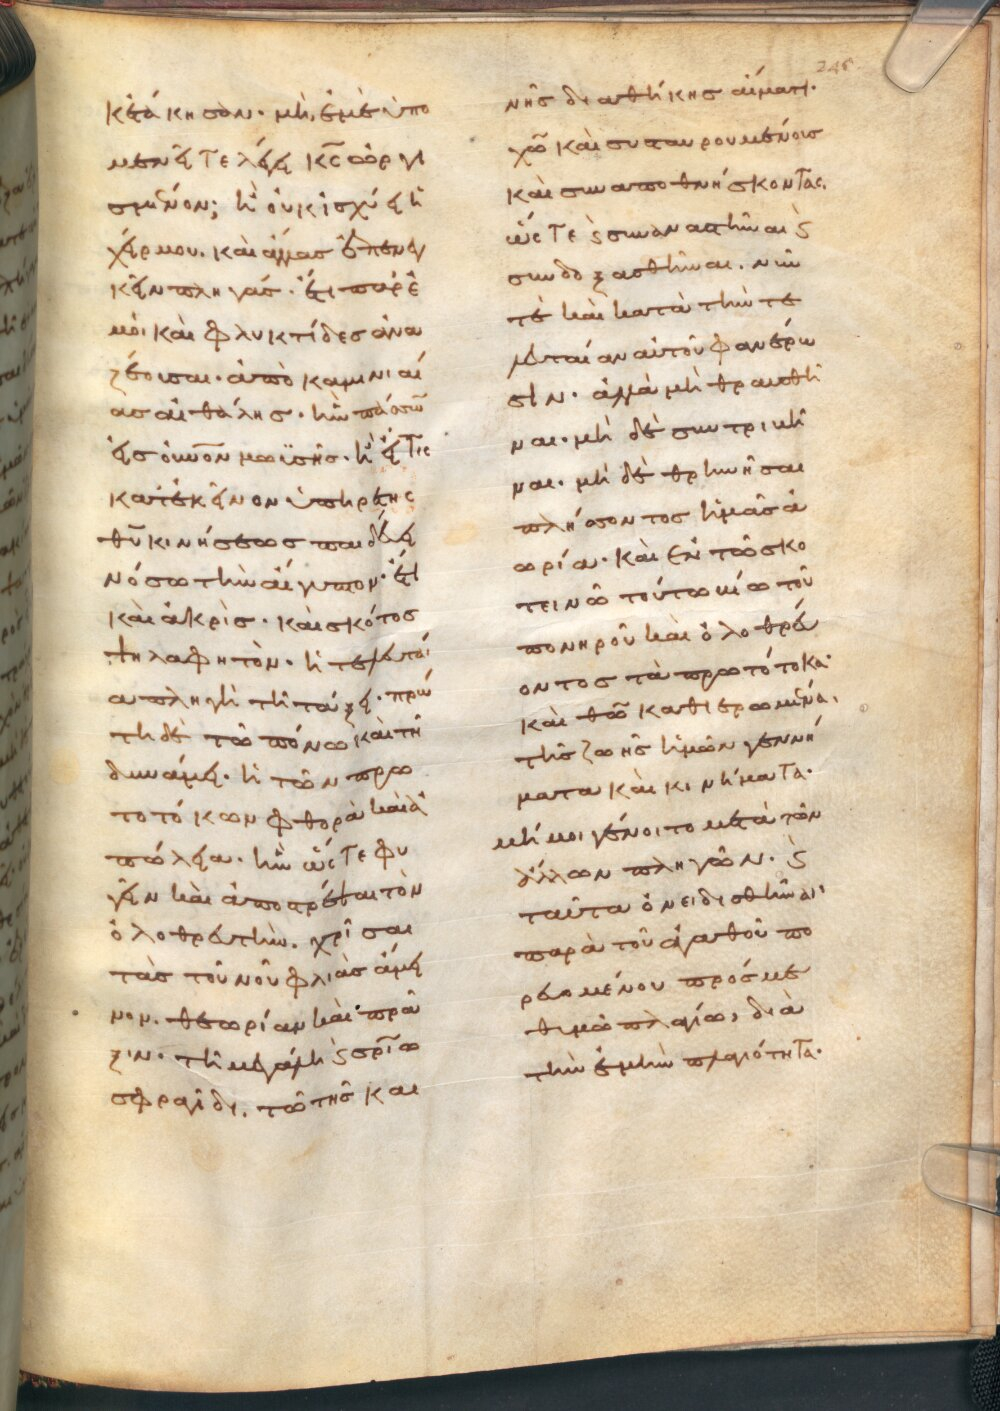 κετάκησαν· μὴ, ἐμὲ ὑπο
μενεῖτε λέγει κ̅ς̅ ὀργι
σμενον; ἢ οὐκ ἰσχύει ἡ
χείρ μου. καὶ ἄλλας
πληγάς· ἔτι
μοι καὶ φλυκτίδες ἀνα
ζέουσαι· ἀπὸ καμινιαί
ας αἰθάλης· ἣν πάσσων
εἰς οὐνὸν μωϋσῆς· ἢ εἴ τις
κατ' ἐκεῖνον ὑπηρέτης
θ̅υ̅ κινήσεως παιδεύει
νόσω τὴν αἴγυπτον· ἔτι
καὶ ἀκρὶς· καὶ σκότος
ψηλαφητὸν· ἡ τελευταί
α πληγὴ τῆ τάξει· πρώ
τη δὲ τῶ πόνω καὶ τῆ
δυνάμει· ἡ τῶν πρω
τοτόκων φθορὰ καὶ ἀ
πώλεια· ἣν ὥστε φυ
γεῖν καὶ ἀποτρέψαι τὸν
ὀλοθρευτὴν. χρῖσαι
τὰς τοῦ νοῦ φλιὰς ἄμει
νον. θεωρίαν καὶ πρᾶ
ξιν· τῆ μεγάλη ϛ σρ̅ίω
σφραγῖδι. τῶ τῆς και
246
νῆς διαθήκης αἵματι·
χ̅ῶ̅ καὶ συσταυρουμένοις
καὶ συναποθνήσκοντας.
ὥστε ϛ συναναστῆναι ϛ
συνδοξασθῆναι. νῦν
τὲ καὶ κατὰ τὴν τε
λευταίαν αὐτοῦ φανέρω
σιν· ἀλλὰ μὴ θραυσθῆ
ναι· μὴ δὲ συντριβῆ
ναι· μὴ δὲ θρηνῆσαι
πλήσσοντος ἡμᾶς ἀ
ωρία· καὶ ἐν τῶ σκο
τεινῶ τούτω βίω τοῦ
πονηροῦ καὶ ὀλοθρεύ
οντος τὰ πρωτότοκα·
καὶ θ̅ῶ̅ καθιερωμένα,
τῆς ζωῆς ἡμῶν γεννή
ματα καὶ κινήματα·
μή μοι γένοιτο μετὰ τῶν
ἄλλων πληγῶν· ϛ
ταῦτα ὀνειδισθῆναι·
παρὰ τοῦ ἀγαθοῦ πο
ρευομένου πρός με
θυμῶ πλαγίω, διὰ
τὴν ἐμὴν πλαγιότητα·